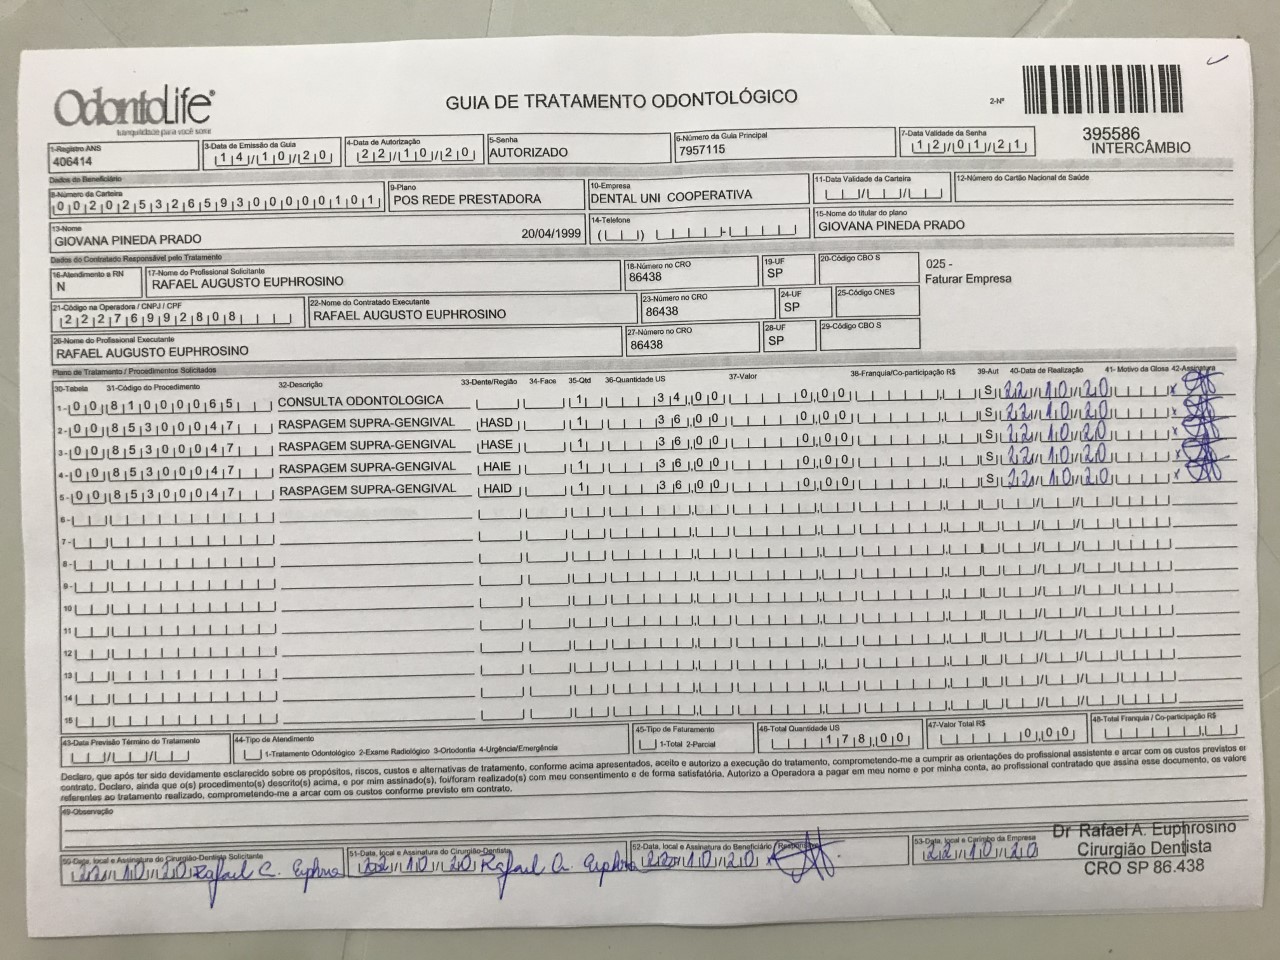 OdontoLife®
tranquilidade para você sorrir
GUIA DE TRATAMENTO ODONTOLÓGICO
2-Nº
395586
INTERCÂMBIO
1-Registro ANS
406414
3-Data de Emissão da Guia
14/10/20
4-Data de Autorização
22/10/20
5-Senha
AUTORIZADO
6-Número da Guia Principal
7957115
7-Data Validade da Senha
12/01/21
Dados do Beneficiário
8-Número da Carteira
00202532659300000101
9-Plano
POS REDE PRESTADORA
10-Empresa
DENTAL UNI COOPERATIVA
11-Data Validade da Carteira
12-Número do Cartão Nacional de Saúde
13-Nome
GIOVANA PINEDA PRADO 20/04/1999
14-Telefone
15-Nome do titular do plano
GIOVANA PINEDA PRADO
Dados do Contratado Responsável pelo Tratamento
16-Atendimento a RN
N
17-Nome do Profissional Solicitante
RAFAEL AUGUSTO EUPHROSINO
18-Número no CRO
86438
19-UF
SP
20-Código CBO S
025 -
Faturar Empresa
21-Código na Operadora / CNPJ / CPF
22276992808
22-Nome do Contratado Executante
RAFAEL AUGUSTO EUPHROSINO
23-Número no CRO
86438
24-UF
SP
25-Código CNES
26-Nome do Profissional Executante
RAFAEL AUGUSTO EUPHROSINO
27-Número no CRO
86438
28-UF
SP
29-Código CBO S
Plano de Tratamento / Procedimentos Solicitados
30-Tabela 31-Código do Procedimento 32-Descrição 33-Dente/Região 34-Face 35-Qtd 36-Quantidade US 37-Valor 38-Franquia/Co-participação R$ 39-Aut 40-Data de Realização 41- Motivo da Glosa 42-Assinatura
1- 00 81000065 CONSULTA ODONTOLOGICA 1 34,00 0,00 S 22/10/20 x
2- 00 85300047 RASPAGEM SUPRA-GENGIVAL HASD 1 36,00 0,00 S 22/10/20 x
3- 00 85300047 RASPAGEM SUPRA-GENGIVAL HASE 1 36,00 0,00 S 22/10/20 x
4- 00 85300047 RASPAGEM SUPRA-GENGIVAL HAIE 1 36,00 0,00 S 22/10/20 x
5- 00 85300047 RASPAGEM SUPRA-GENGIVAL HAID 1 36,00 0,00 S 22/10/20 x
6-
7-
8-
9-
10
11
12
13
14
15
43-Data Previsão Término do Tratamento
44-Tipo de Atendimento
1-Tratamento Odontológico 2-Exame Radiológico 3-Ortodontia 4-Urgência/Emergência
45-Tipo de Faturamento
1-Total 2-Parcial
46-Total Quantidade US
178,00
47-Valor Total R$
0,00
48-Total Franquia / Co-participação R$
Declaro, que após ter sido devidamente esclarecido sobre os propósitos, riscos, custos e alternativas de tratamento, conforme acima apresentados, aceito e autorizo a execução do tratamento, comprometendo-me a cumprir as orientações do profissional assistente e arcar com os custos previstos e
contrato. Declaro, ainda que o(s) procedimento(s) descrito(s) acima, e por mim assinado(s), foi/foram realizado(s) com meu consentimento e de forma satisfatória. Autorizo a Operadora a pagar em meu nome e por minha conta, ao profissional contratado que assina esse documento, os valore
referentes ao tratamento realizado, comprometendo-me a arcar com os custos conforme previsto em contrato.
49-Observação
50-Data, local e Assinatura do Cirurgião-Dentista Solicitante
22/10/20 Rafael
51-Data, local e Assinatura do Cirurgião-Dentista
22/10/20 Rafael
52-Data, local e Assinatura do Beneficiário / Responsável
22/10/20 x
53-Data, local e Carimbo da Empresa
22/10/20
Dr Rafael A. Euphrosino
Cirurgião Dentista
CRO SP 86.438